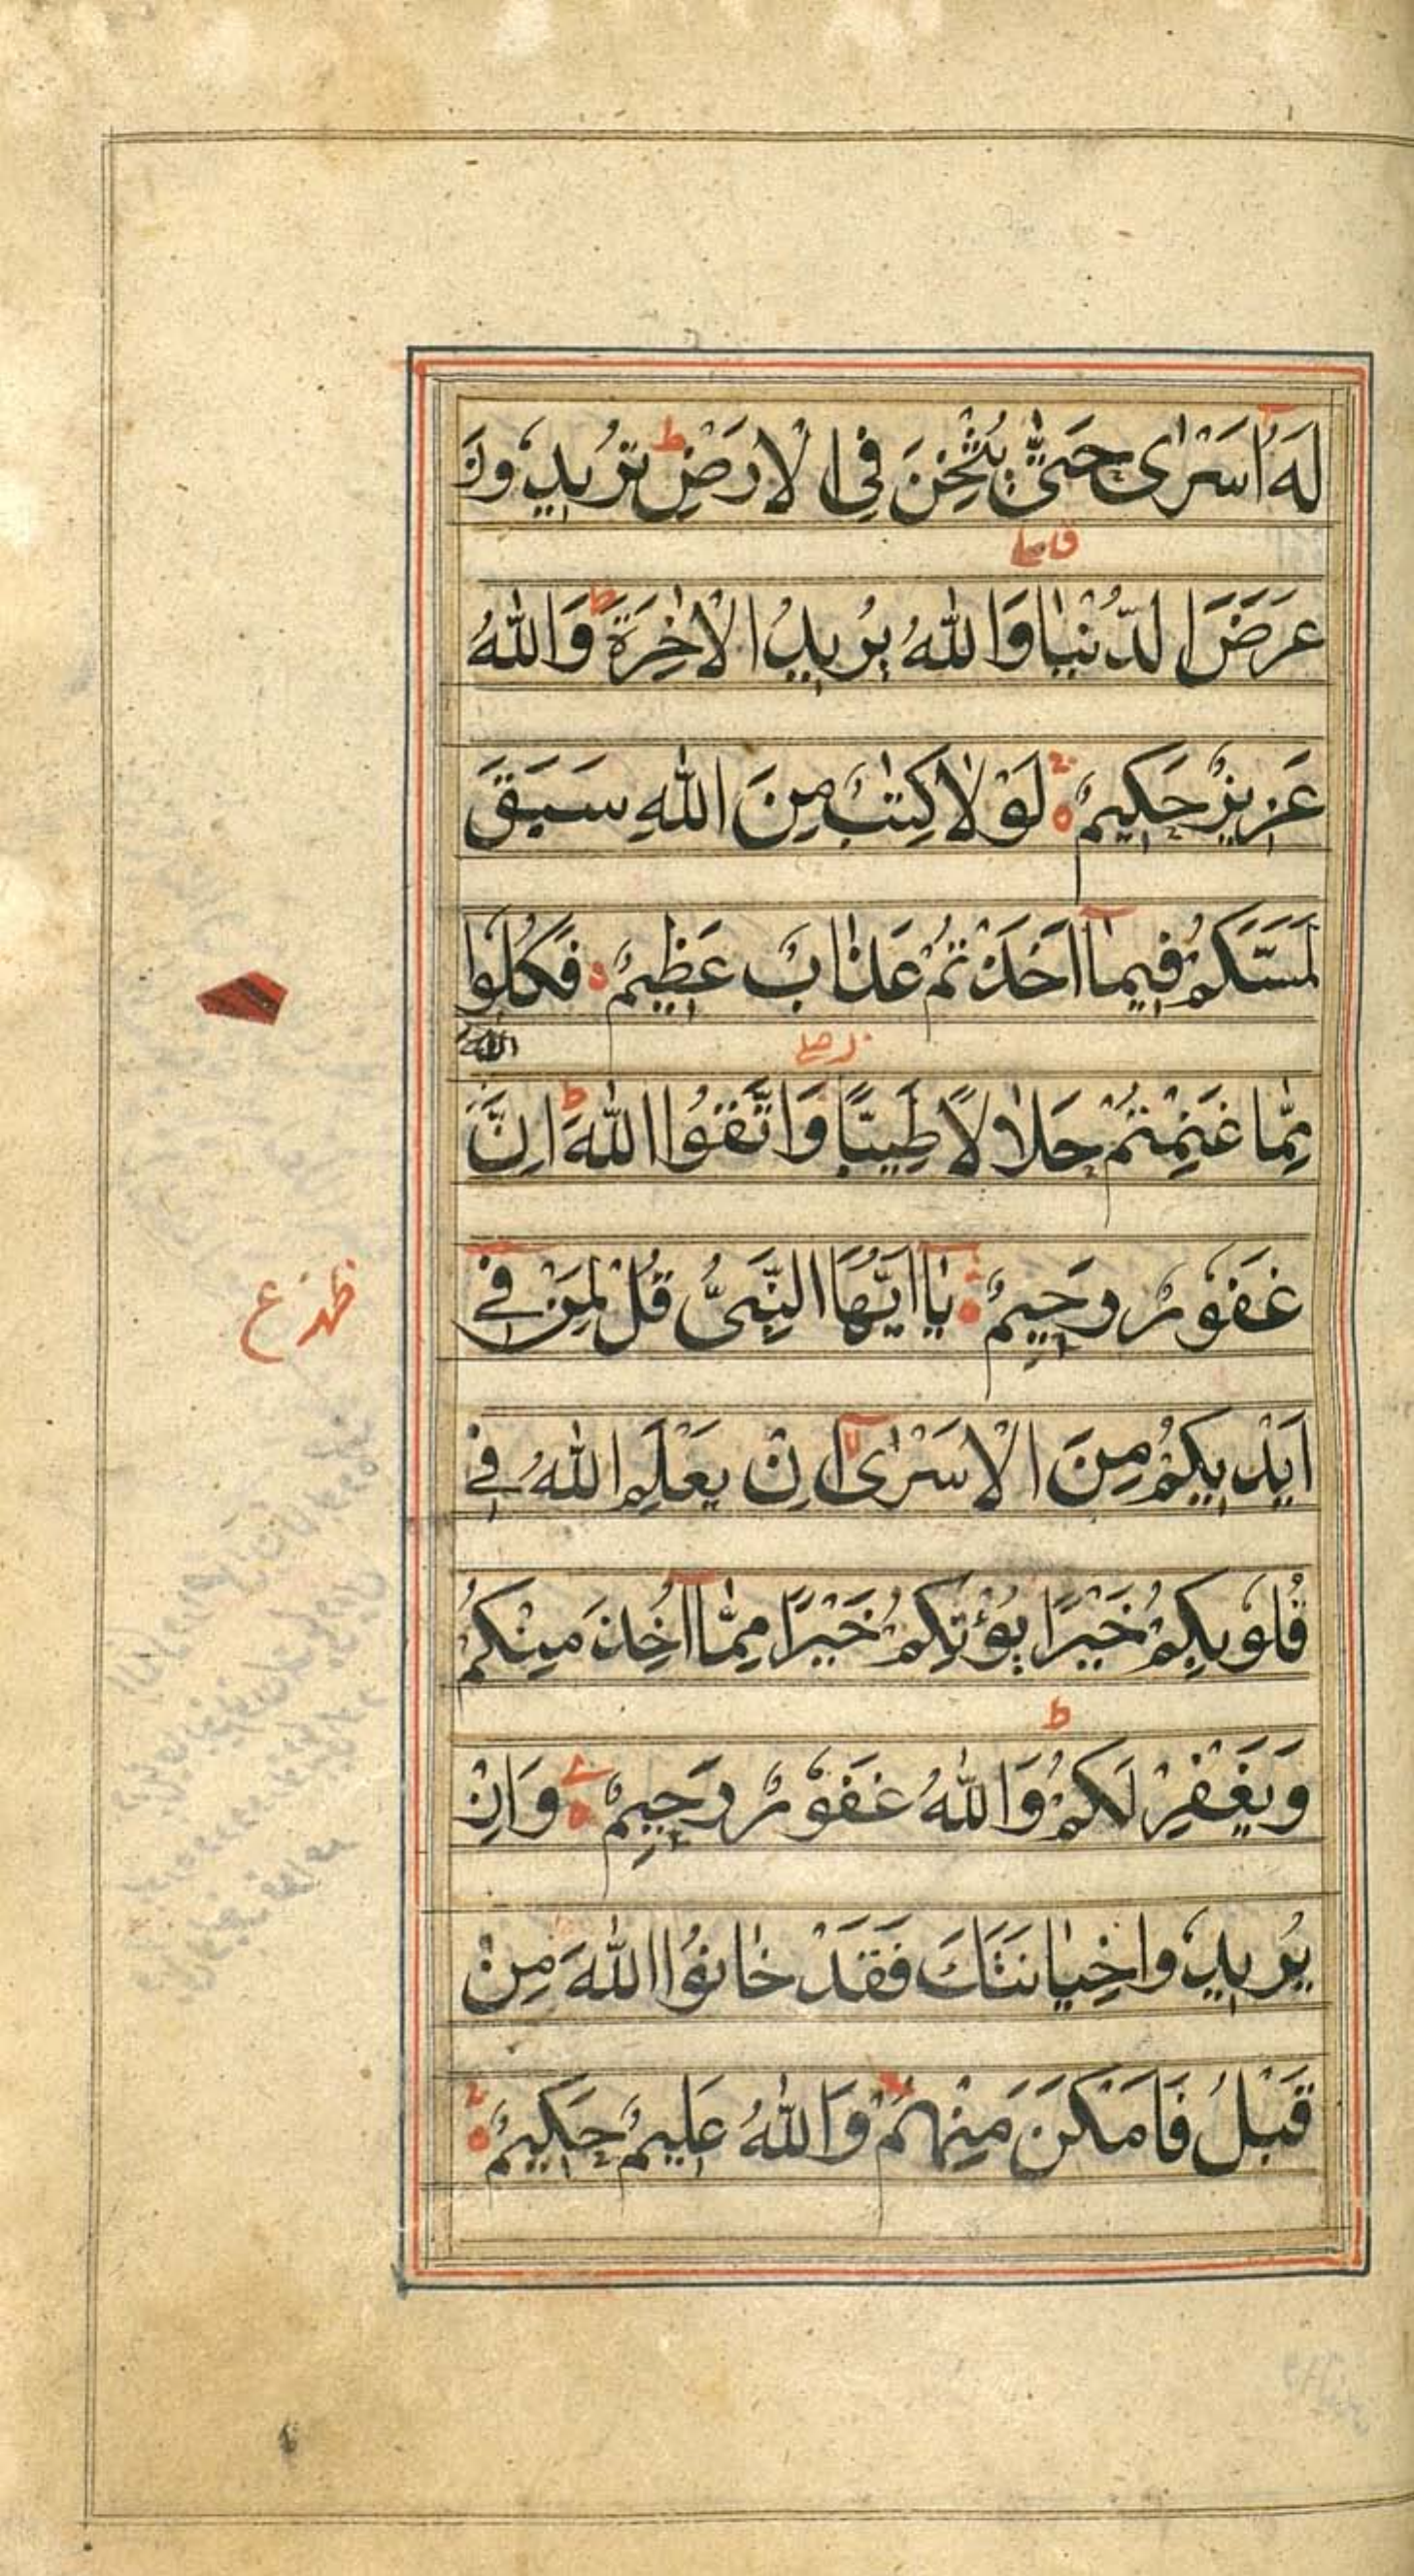 لَهُ اَسْرٰى حَتّٰى يُثْخِنَ فِى الْاَرْضِ ط تُرِيدُونَ
عَرَضَ الدُّنْيَا وَاللّٰهُ يُرِيدُ الْاٰخِرَةَ ط وَاللّٰهُ
عَزِيزٌ حَكِيمٌ ه لَوْلَا كِتٰبٌ مِنَ اللّٰهِ سَبَقَ
لَمَسَّكُمْ فِيمَا اَخَذْتُمْ عَذَابٌ عَظِيمٌ ه فَكُلُوا
اللّٰه
مِمَّا غَنِمْتُمْ حَلَالًا طَيِّبًا وَاتَّقُوا اللّٰهَ ط اِنَّ
غَفُورٌ رَحِيمٌ ه يٰا اَيُّهَا النَّبِىُّ قُلْ لِمَنْ فِى
ع
اَيْدِيكُمْ مِنَ الْاَسْرٰى لا اِنْ يَعْلَمِ اللّٰهُ فِى
قُلُوبِكُمْ خَيْرًا يُؤْتِكُمْ خَيْرًا مِمَّا اُخِذَ مِنْكُمْ
وَيَغْفِرْ لَكُمْ ط وَاللّٰهُ غَفُورٌ رَحِيمٌ ه وَاِنْ
يُرِيدُوا خِيَانَتَكَ فَقَدْ خَانُوا اللّٰهَ مِنْ
قَبْلُ فَاَمْكَنَ مِنْهُمْ ط وَاللّٰهُ عَلِيمٌ حَكِيمٌ ه